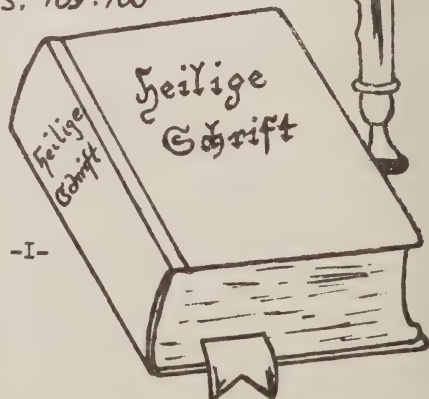 Heilige
Schrift
Heilige
Schrift
-I-